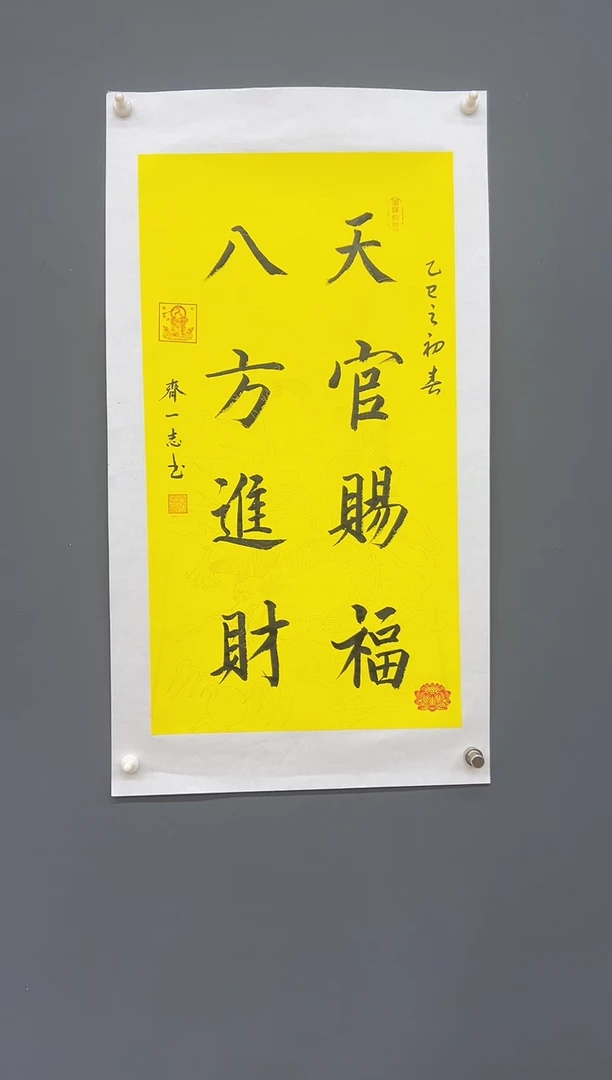 乙巳之初春
天官賜福
八方進財
齊一志书